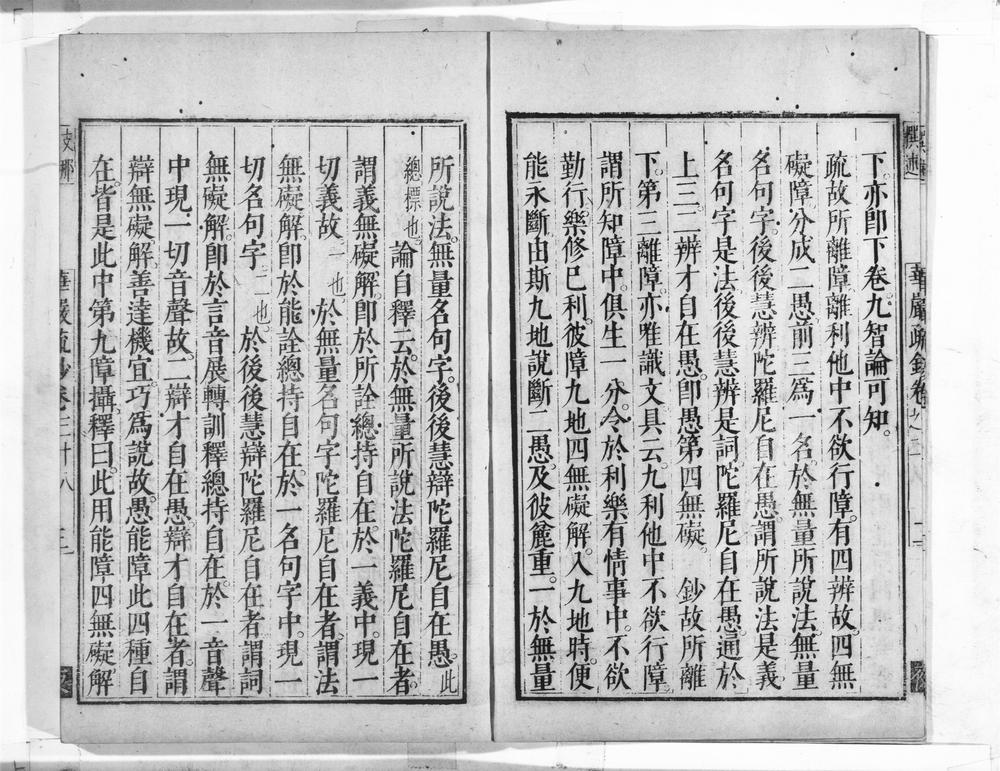 下。亦即下卷九智論可知。
疏故所離障離利他中不欲行障。有四辨故。四無
礙障分成二愚。前三爲一。名於無量所說法無量
名句字。後後慧辨陀羅尼自在愚。謂所說法是義
名句字是法後後慧辨是詞陀羅尼自在愚。通於
上三。二辨才自在愚。即愚第四無礙。　鈔故所離
下。第三離障。亦唯識文具云。九利他中不欲行障。
謂所知障中。俱生一分。令於利樂有情事中。不欲
勤行。樂修巳利。彼障九地四無礙解。入九地時。便
能永斷。由斯九地說斷二愚。及彼麤重。一於無量
所說法。無量名句字。後後慧辯陀羅尼自在愚。此
總標也。論自釋云。於無量所說法陀羅尼自在者。
謂義無礙解。即於所詮總持自在。於一義中。現一
切義故一也。於無量名句字陀羅尼自在者。謂法
無礙解。即於能詮總持自在。於一名句字中。現一
切名句字二也。於後後慧辯陀羅尼自在者。謂詞
無礙解。即於言音展轉訓釋總持自在。於一音聲
中現一切音聲故。二辯才自在愚。辯才自在者。謂
辯無礙解。善達機宜。巧爲說故。愚能障此四種自
在。皆是此中第九障攝。釋曰。此用能障四無礙解
華嚴疏鈔卷三十八
三